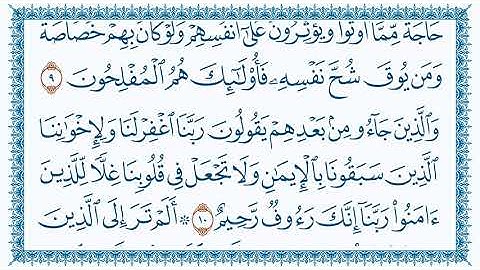 حَاجَةً مِّمَّا أُوتُوا وَيُؤْثِرُونَ عَلَىٰ أَنفُسِهِمْ وَلَوْ كَانَ بِهِمْ خَصَاصَةٌ
وَمَن يُوقَ شُحَّ نَفْسِهِۦ فَأُو۟لَٰٓئِكَ هُمُ ٱلْمُفْلِحُونَ ٩
وَٱلَّذِينَ جَآءُو مِنۢ بَعْدِهِمْ يَقُولُونَ رَبَّنَا ٱغْفِرْ لَنَا وَلِإِخْوَٰنِنَا
ٱلَّذِينَ سَبَقُونَا بِٱلْإِيمَٰنِ وَلَا تَجْعَلْ فِى قُلُوبِنَا غِلًّا لِّلَّذِينَ
ءَامَنُوا۟ رَبَّنَآ إِنَّكَ رَءُوفٌ رَّحِيمٌ ١٠ ۞ أَلَمْ تَرَ إِلَى ٱلَّذِينَ